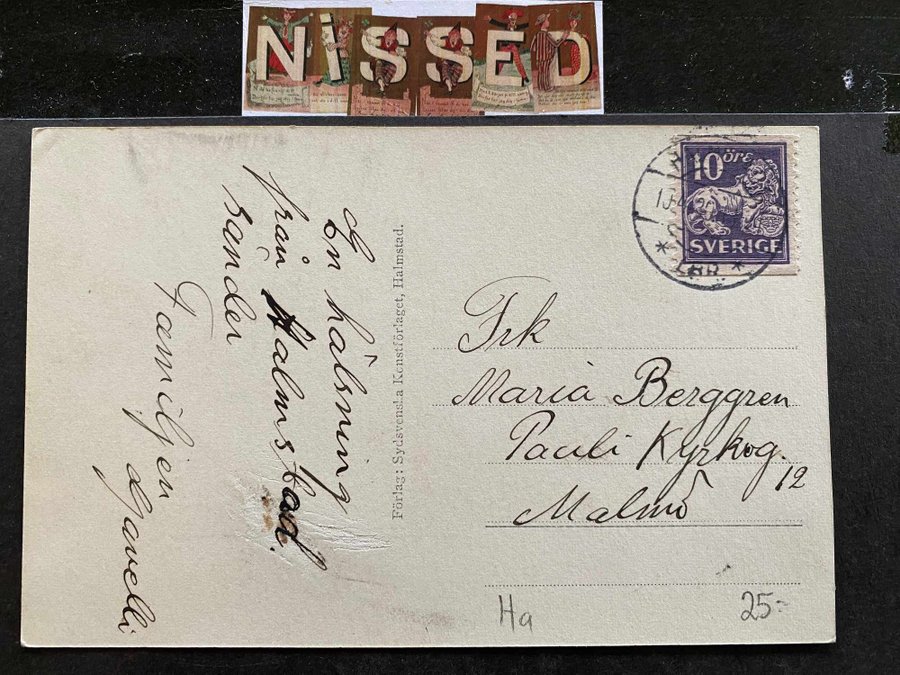 NISSED
En hälsning
från Halmstad.
sänder
Familjen
Förlag: Sydsvenska Konstförlaget, Halmstad.
10 ÖRE
SVERIGE
LBR
Frk
Maria Berggren
Pauli Kyrkog.
12
Malmö
Ha
25:-